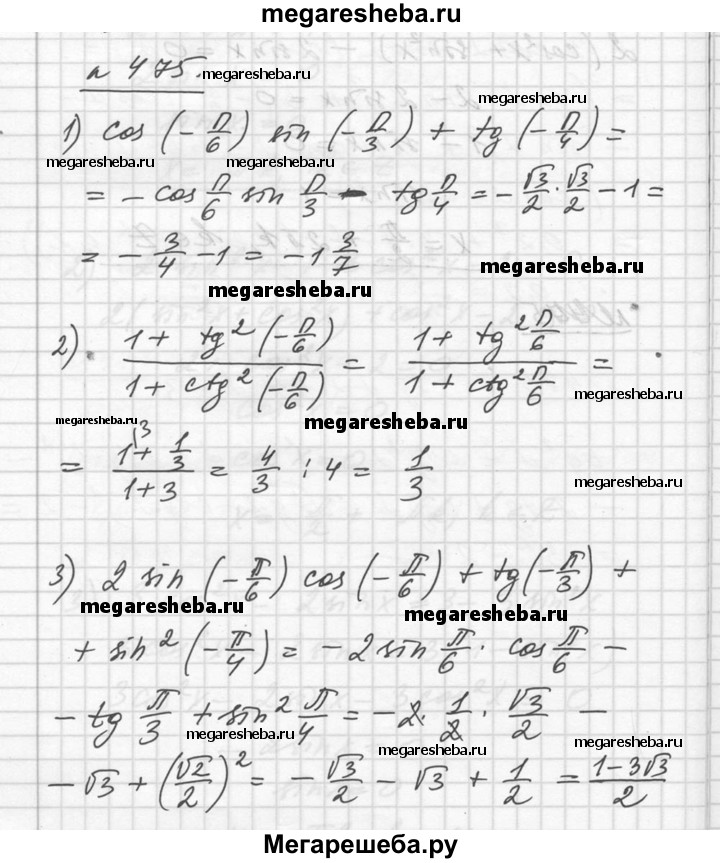 megaresheba.ru
п 475. megaresheba.ru
megaresheba.ru
1) cos (-π/6) sin (-π/3) + tg (-π/4) =
megaresheba.ru megaresheba.ru megaresheba.ru
= - cos π/6 sin π/3 - tg π/4 = - √3/2 · √3/2 - 1 =
= - 3/4 - 1 = -1 3/7 megaresheba.ru
megaresheba.ru
2) (1 + tg² (-π/6))/(1 + ctg² (-π/6)) = (1 + tg² π/6)/(1 + ctg² π/6) =
megaresheba.ru
megaresheba.ru megaresheba.ru
= (1\3 + 1/3)/(1 + 3) = 4/3 : 4 = 1/3
megaresheba.ru
3) 2 sin (-π/6) cos (-π/6) + tg (-π/3) +
megaresheba.ru megaresheba.ru
+ sin² (-π/4) = - 2 sin π/6 · cos π/6 -
- tg π/3 + sin² π/4 = - 2 · 1/2 · √3/2 -
megaresheba.ru megaresheba.ru
- √3 + (√2/2)² = - √3/2 - √3 + 1/2 = (1-3√3)/2
megaresheba.ru
Мегарешеба.ру